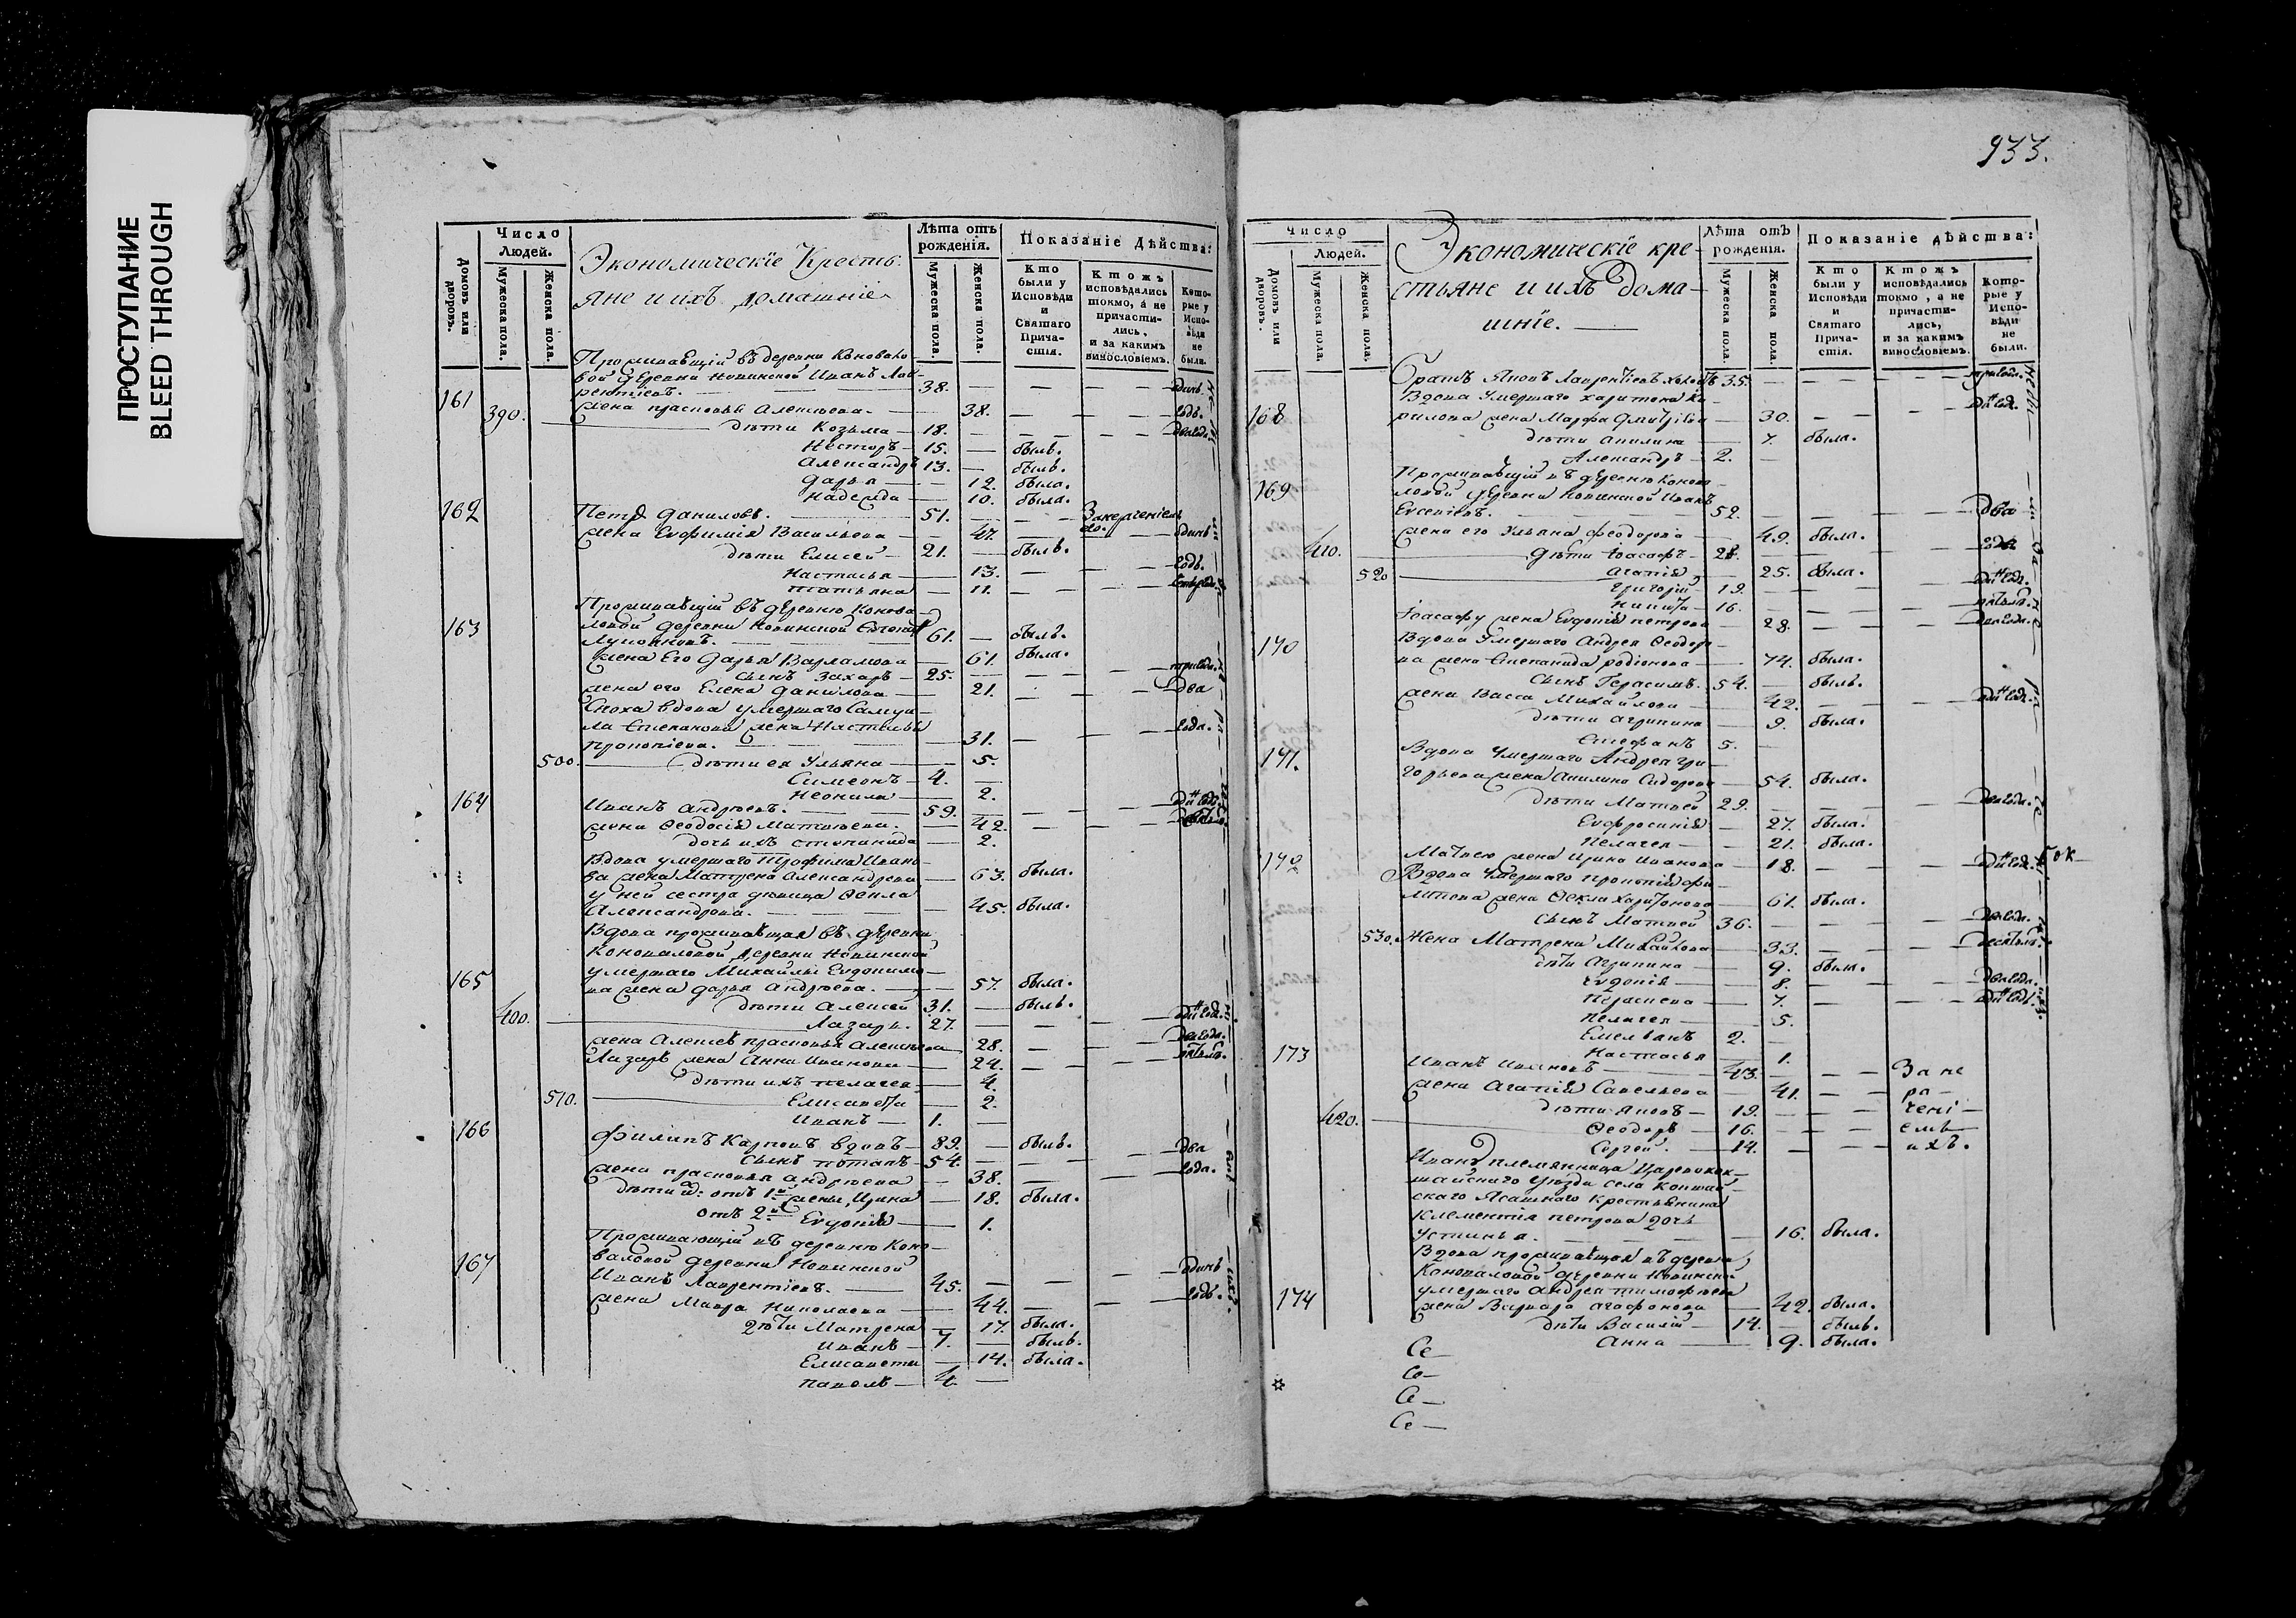 ПРОСТУПАНИЕ
BLEED THROUGH
933.
Домовъ или дворовъ.
Число Людей.
Мужеска пола.
Женска пола.
Экономическіе Кресть
яне и ихъ домашніе
Лѣта отъ рожденія.
Мужеска пола.
Женска пола.
Показаніе Дѣйства:
Кто были у Исповѣди и Святаго Прича-стія.
Ктожъ исповѣдались токмо, а не причасти-лись, и за какимъ винословіемъ.
Кото-рые у Испо-вѣди не были.
Проживающій въ деревни Коновало
вой деревни Новинской Иванъ Лав
161 рентіевъ. 38. — — — одинъ
390. жена прасковья Алексѣева. — 38. — — годъ.
дѣти Козьма — 18. — — —
Несторъ — 15. — былъ.
Александръ 13. — былъ.
дарья — — 12. была.
надежда — 10. была.
162 Петръ даниловъ. 51. — —
жена Евфимія Васильева — 47. — — одинъ
дѣти Елисей — 21. — былъ.
Настасья — 13. — — годъ.
татьяна — 11. — —
Проживающій въ деревню Конова
163 ловой деревни Новинской 61. — былъ.
жена Его Дарья Варламова — 61. была.
сынъ Захаръ — 25. — — —
жена его Елена данилова — 21. — — два
Сноха вдова умершаго Самуи
ла Степанова жена Настасья
прокопіева. — 31. — — года.
500. дѣти ея Ульяна — 5.
Симеонъ — 4. —
Неонила — 2.
164 Иванъ андреевъ. 59. — — —
жена Ѳеодосія Матвѣева. — 42. — —
дочь ихъ степанида — 2.
Вдова умершаго Трофима Ивано
ва жена Матрена Александрова — 63. была.
у ней сестра дѣвица Ѳекла
Александрова. — 45. была.
Вдова проживающая въ деревни
Коноваловой деревни Новинской
умершаго Михайлы Евдокимо
165 ва жена дарья андреева. — 57. была.
дѣти Алексей 31. — былъ.
400. Лазарь. 27. — — —
жена Алексѣя прасковья Алексѣева 28. — —
Лазаря жена Анна Иванова — 24. — —
дѣти ихъ пелагея — 4.
510. Елисавета — 2.
Иванъ — 1. —
166 Филипъ Карповъ вдовъ — 89. — былъ.
сынъ потапъ — 54. — — — два
жена прасковья андреева — 38. — — года.
дѣти отъ 1й жены, Ирина — 18. была.
отъ 2й Евдокія — 1.
Проживающій въ деревню Коно
167 валовой деревни Новинской
Иванъ Лаврентіевъ. — 45. — — — одинъ
жена Мавра Николаева — 44. — — годъ.
дѣти Матрена — 17. была.
Иванъ — 7. — былъ.
Елисавета — 14. была.
павелъ — 4. —
Домовъ или дворовъ.
Число Людей.
Мужеска пола.
Женска пола.
Экономическіе кре-
стьяне и ихъ дома-
шніе.
Лѣта отъ рожденія.
Мужеска пола.
Женска пола.
Показаніе дѣйства:
Кто были у Исповѣди и Святаго Прича-стія.
Ктожъ исповѣдались токмо, а не причасти-лись, и за какимъ винословіемъ.
Кото-рые у Испо-вѣди не были.
братъ Яковъ Лаврентіевъ 35. — — —
Вдова умершаго харитона Ки
168 рилова жена Марфа Дмитріева — 30. — —
дѣти акилина — 7. была.
Александръ — 2. —
169 Проживающій въ деревню Конова
ловой деревни Новинской Иванъ
Евсевіевъ. 52. — — — два
410. жена его Ульяна феодорова 49. была.
дѣти Іоасафъ — 28. — — — года
520 агапія 25. была.
Григорій — 19. — — —
никита — 16. — — —
Іоасафу жена Евдокія петрова 28. — —
170 Вдова умершаго Андрея Ѳеодоро
ва жена Степанида родіонова — 74. была.
сынъ Герасимъ. 54. — былъ.
жена Васса Михайлова — 42. — —
дѣти агрипина — 9. была.
Стефанъ 5. —
171. Вдова умершаго Андрея гри
горьева жена Акилина Сидорова — 54. была.
дѣти Матвей 29. — — —
Евфросинія 27. была.
пелагея — 21. была.
172 Матвею жена Ирина Иванова 18. — —
Вдова умершаго прокопія фи
липова жена Ѳекла харитонова 61. была.
сынъ Матвей 36. — — —
530. Жена Матрена Михайлова 33. — —
дѣти агрипина — 9. была.
Евдокія — 8. — —
параскева — 7. — —
пелагея — 5.
Емельянъ 2. —
Настасья — 1.
173 Иванъ Ивановъ — 43. — — — За не
жена Агапія Савельева — 41. — — ра —
дѣти Яковъ — 19. — — — чені —
420. Ѳеодоръ — 16. — — — емъ
Сергей. — 14. — — — ихъ.
Ивана племянница Царевокок
шайскаго уѣзда села Кокшай
скаго Ясашнаго крестьянина
Климентія петрова дочь
устинья. — 16. была.
Вдова проживающая въ деревни
Коноваловой деревни Новинской
174 умершаго андрея тимофѣева
жена Варвара агафонова — 42. была.
дѣти Василій — 14. — былъ.
Анна — 9. была.
Се —
Се —
Се —
Се —